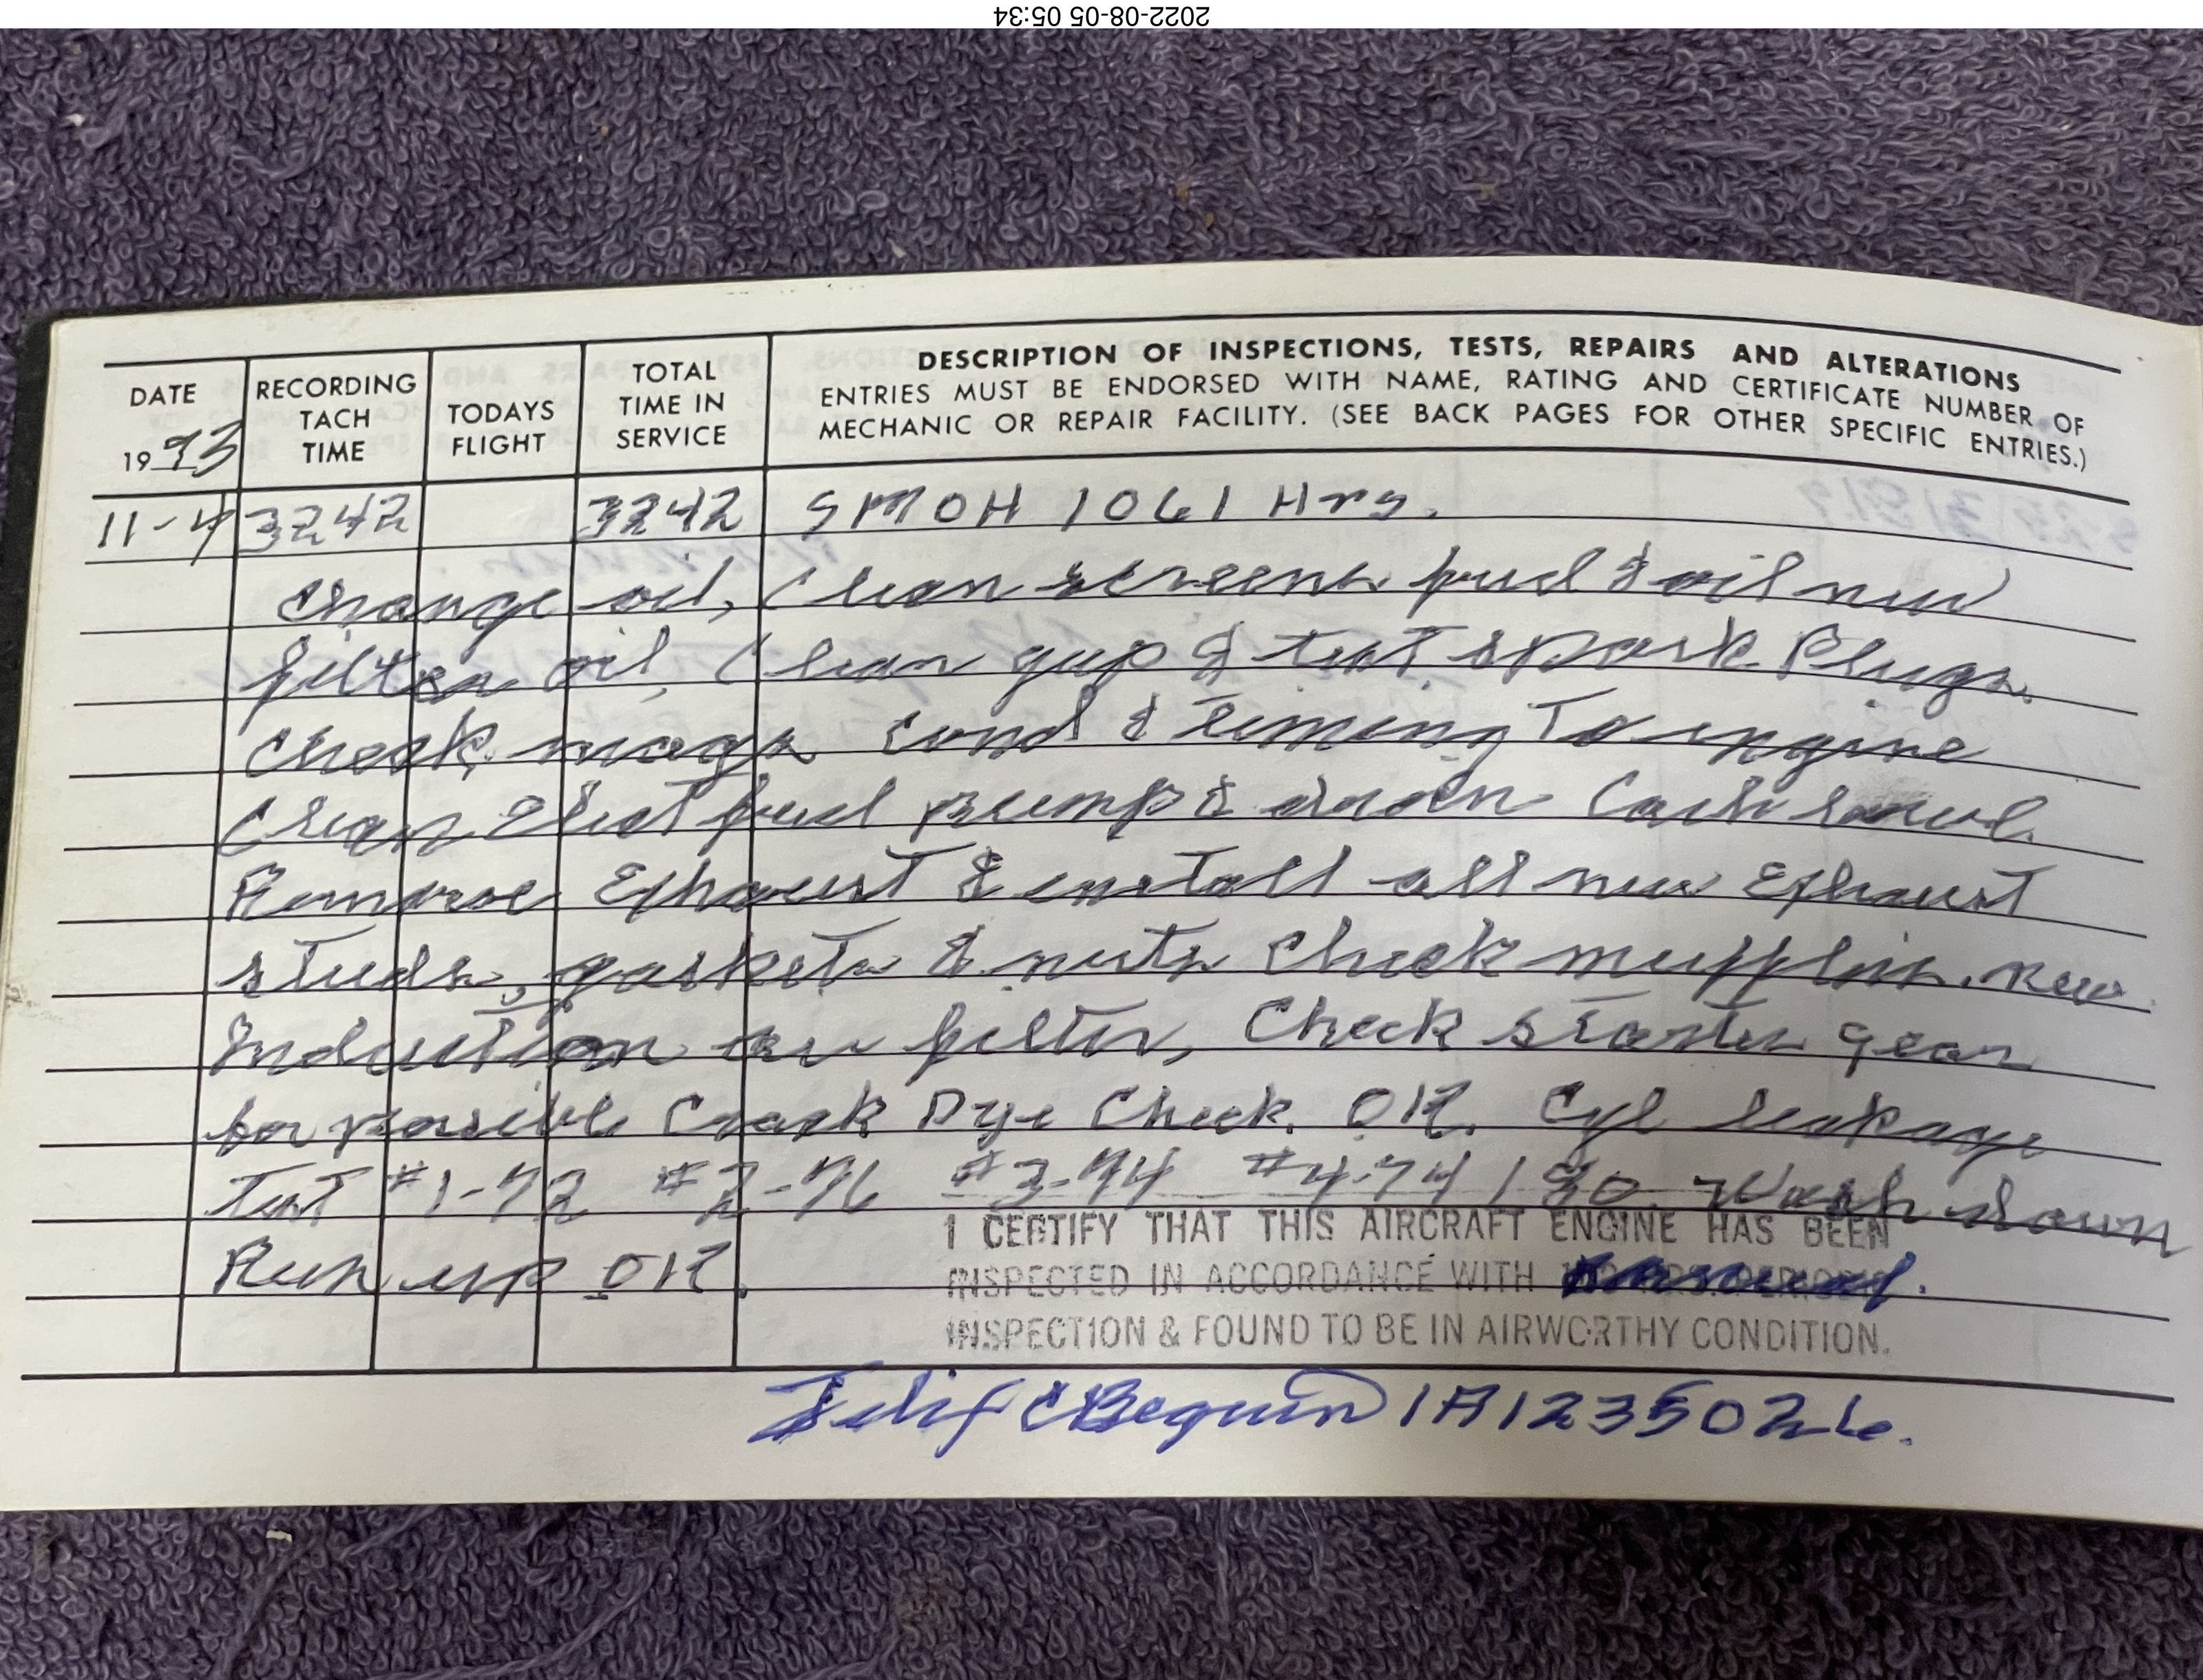 2022-08-05 05:34
DATE
1993
RECORDING
TACH
TIME
TODAYS
FLIGHT
TOTAL
TIME IN
SERVICE
DESCRIPTION OF INSPECTIONS, TESTS, REPAIRS AND ALTERATIONS
ENTRIES MUST BE ENDORSED WITH NAME, RATING AND CERTIFICATE NUMBER OF
MECHANIC OR REPAIR FACILITY. (SEE BACK PAGES FOR OTHER SPECIFIC ENTRIES.)
11-4 3242 3242 SMOH 1061 Hrs.
Change oil, Clean screens fuel & oil new
filter oil, Clean gap & test spark Plugs.
Check mags cond & timing To engine
Clean Elect fuel pump & drain Carb bowl.
Remove Exhaust & install all new Exhaust
studs, gaskets & nuts Check muffler. New
Induction air filter, Check starter gear
for possible Crack Dye Check. OK. Cyl leakage
Test #1-72 #2-76 #3-74 #4-74 / 80 Wash down
Run up OK.
I CERTIFY THAT THIS AIRCRAFT ENGINE HAS BEEN
INSPECTED IN ACCORDANCE WITH Annual.
INSPECTION & FOUND TO BE IN AIRWORTHY CONDITION.
C Beguin IA1235026.